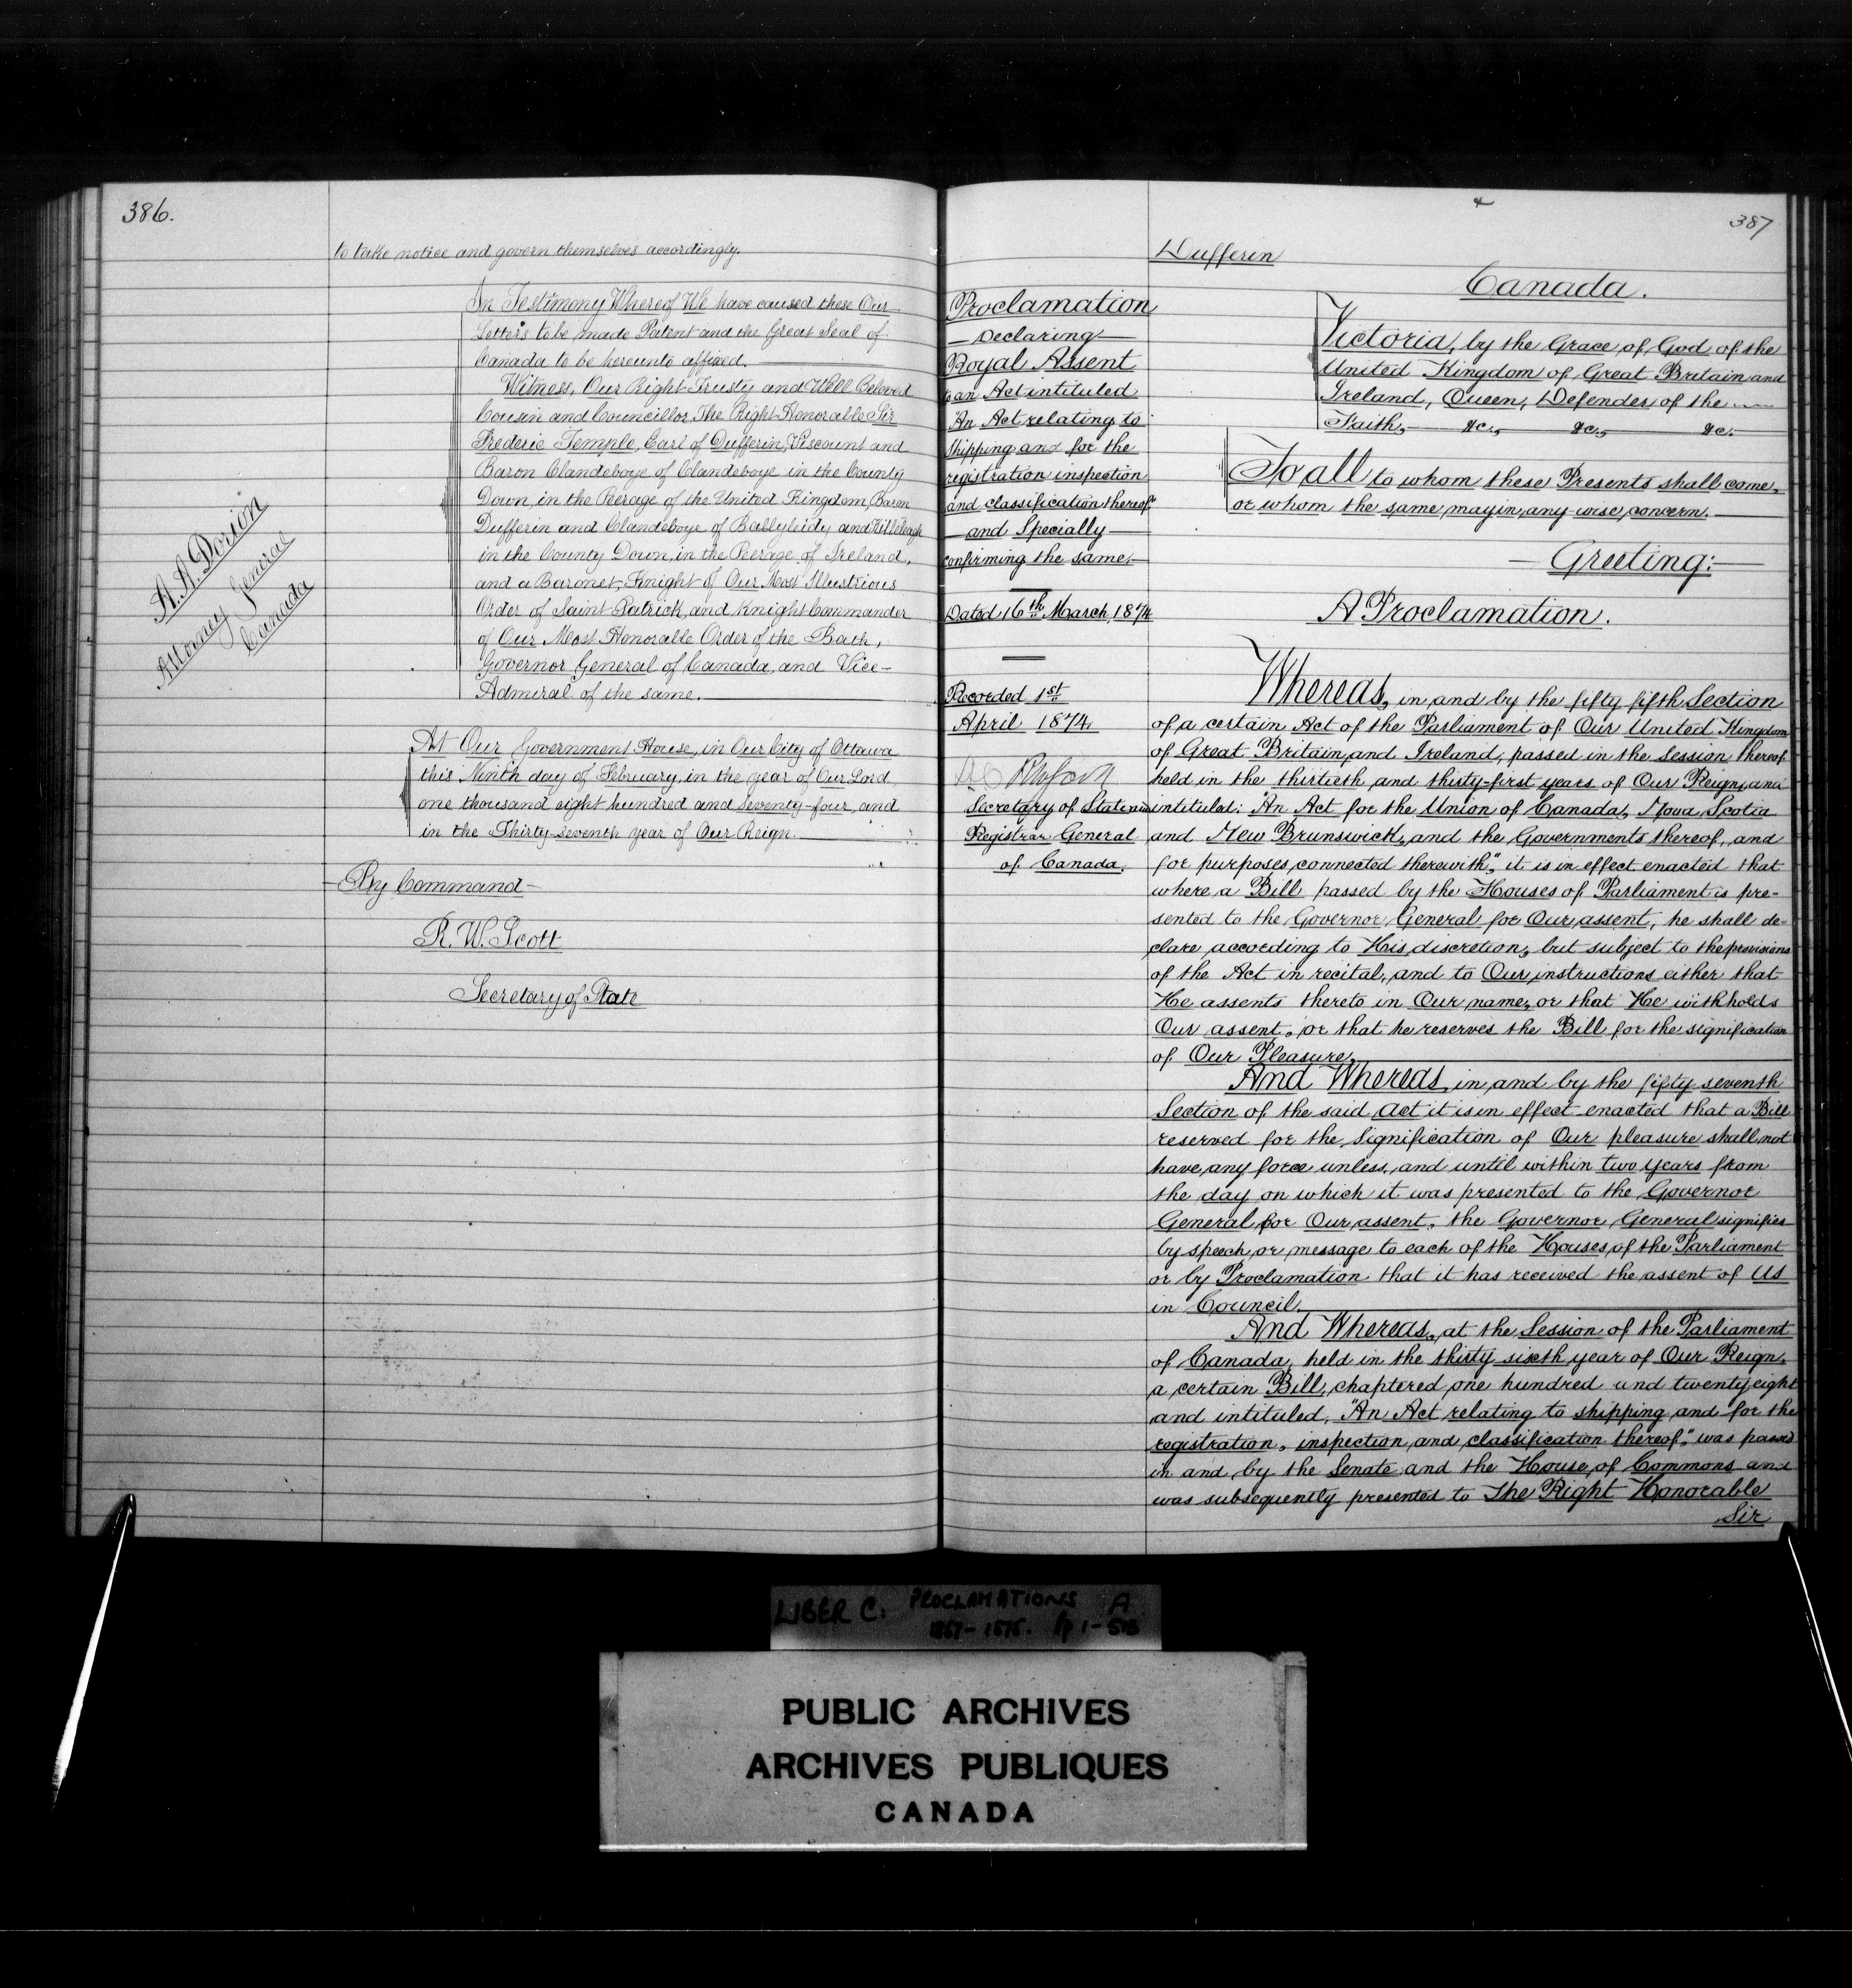 386.
to take notice and govern themselves accordingly.
In Testimony Whereof We have caused these Our
Letters to be made Patent and the Great Seal of
Canada to be hereunto affixed.
Witness, Our Right Trusty and Well Beloved
Cousin and Councillor, The Right Honorable Sir
Frederic Temple, Earl of Dufferin, Viscount and
Baron Clandeboye of Clandeboye in the County
Down, in the Peerage of the United Kingdom, Baron
Dufferin and Clandeboye of Ballyleidy and Killeleagh
in the County Down, in the Peerage of Ireland,
and a Baronet, Knight of Our Most Illustrious
Order of Saint Patrick, and Knight Commander
of Our Most Honorable Order of the Bath,
Governor General of Canada, and Vice-
Admiral of the same.
A. A. Dorion
Attorney General
Canada
At Our Government House, in Our City of Ottawa
this Ninth day of February, in the year of Our Lord,
one thousand eight hundred and seventy-four, and
in the Thirty-seventh year of Our Reign.
By Command
R. W. Scott
Secretary of State
387
Dufferin
Canada.
Proclamation
Declaring
Royal Assent
to an Act intituled
"An Act relating to
Shipping and for the
registration inspection
and classification thereof"
and Specially
confirming the same.
Dated 16th March, 1874
Recorded 1st
April 1874.
Secretary of State and
Registrar General
of Canada.
Victoria, by the Grace of God of the
United Kingdom of Great Britain and
Ireland, Queen, Defender of the
Faith, &c., &c., &c.
To all to whom these Presents shall come,
or whom the same may in any wise concern.
Greeting:
A Proclamation.
Whereas, in and by the fifty fifth Section
of a certain Act of the Parliament of Our United Kingdom
of Great Britain and Ireland, passed in the Session thereof
held in the thirtieth and thirty-first years of Our Reign, and
intituled: "An Act for the Union of Canada, Nova Scotia
and New Brunswick, and the Governments thereof, and
for purposes connected therewith", it is in effect enacted that
where a Bill passed by the Houses of Parliament is pre-
sented to the Governor General for Our assent, he shall de-
clare according to His discretion, but subject to the provisions
of the Act in recital, and to Our instructions either that
He assents thereto in Our name, or that He withholds
Our assent, or that he reserves the Bill for the signification
of Our Pleasure.
And Whereas, in and by the fifty seventh
Section of the said Act it is in effect enacted that a Bill
reserved for the Signification of Our pleasure shall not
have any force unless, and until within two years from
the day on which it was presented to the Governor
General for Our assent, the Governor General signifies
by speech or message to each of the Houses of the Parliament
or by Proclamation that it has received the assent of Us
in Council.
And Whereas, at the Session of the Parliament
of Canada, held in the thirty sixth year of Our Reign,
a certain Bill, chaptered one hundred and twenty eight
and intituled, "An Act relating to shipping and for the
registration, inspection and classification thereof", was passed
in and by the Senate and the House of Commons and
was subsequently presented to The Right Honorable
Sir
LIBER C: PROCLAMATIONS A
1867-1875. pp 1-
PUBLIC ARCHIVES
ARCHIVES PUBLIQUES
CANADA